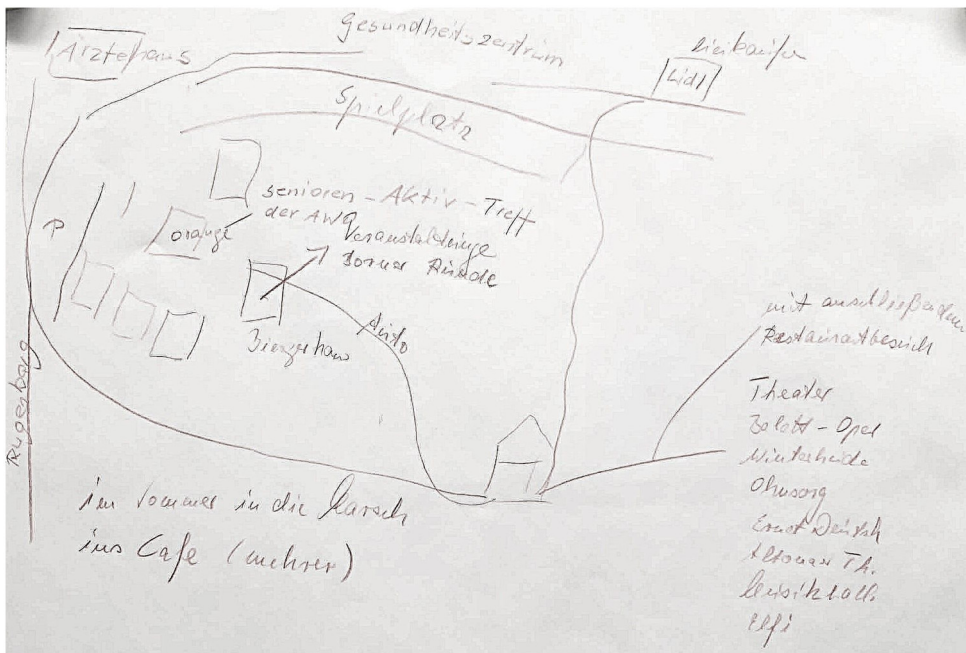 Ärztehaus
Gesundheitszentrum
einkaufen
Lidl
Spielplatz
P
orange
Senioren-Aktiv-Treff
der AWO
Borner Runde
Bürgerhaus
Auto
Rugenbarg
mit anschließendem
Restaurantbesuch
Theater
Balett-Oper
Winterhude
Ohnsorg
Ernst Deutsch
Altonaer Th.
Musikhall.
Elfi
im Sommer in die Marsch
ins Cafe (mehrer)